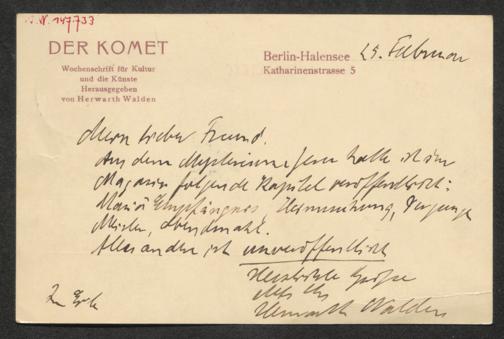 I.N. 147.733
DER KOMET
Wochenschrift für Kultur
und die Künste
Herausgegeben
von Herwarth Walden
Berlin-Halensee 25. Februar
Katharinenstrasse 5
Mein lieber Freund.
Aus dem Mysterium Jesu hatte ich im
Magazin folgende Kapitel veröffentlicht:
Mariä Empfängnis, Heimsuchung, Der junge
Meister, Abendmahl.
Alles andere ist unveröffentlicht
Herzlichste Grüße
Ihr
Herwarth Walden